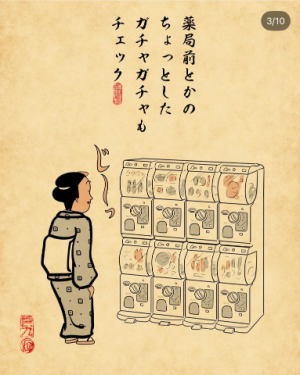 薬局前とかの
ちょっとした
ガチャガチャも
チェック
じーっ
3/10